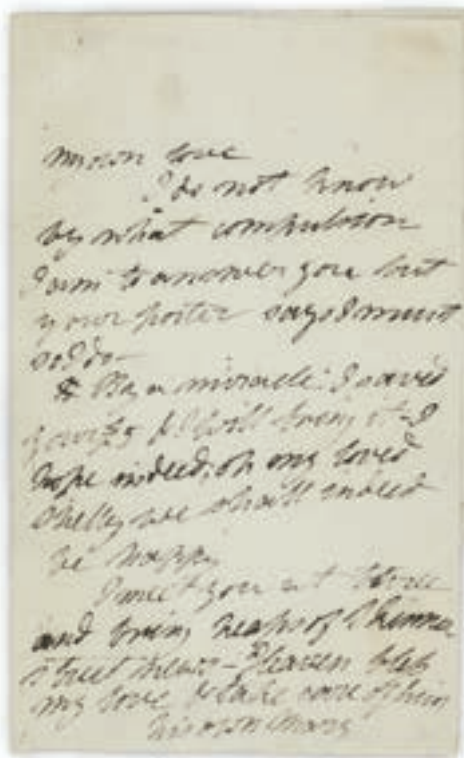 my own love
I do not know
by what compulsion
I am to answer you but
your porter says I must
so I do—
By a miracle I saved
your £5 & I will bring it—I
hope indeed, oh my loved
Shelley we shall indeed
be happy
I meet you at three
and bring heaps of Skinner
street news—Heaven bless
my love & take care of him
his own Mary